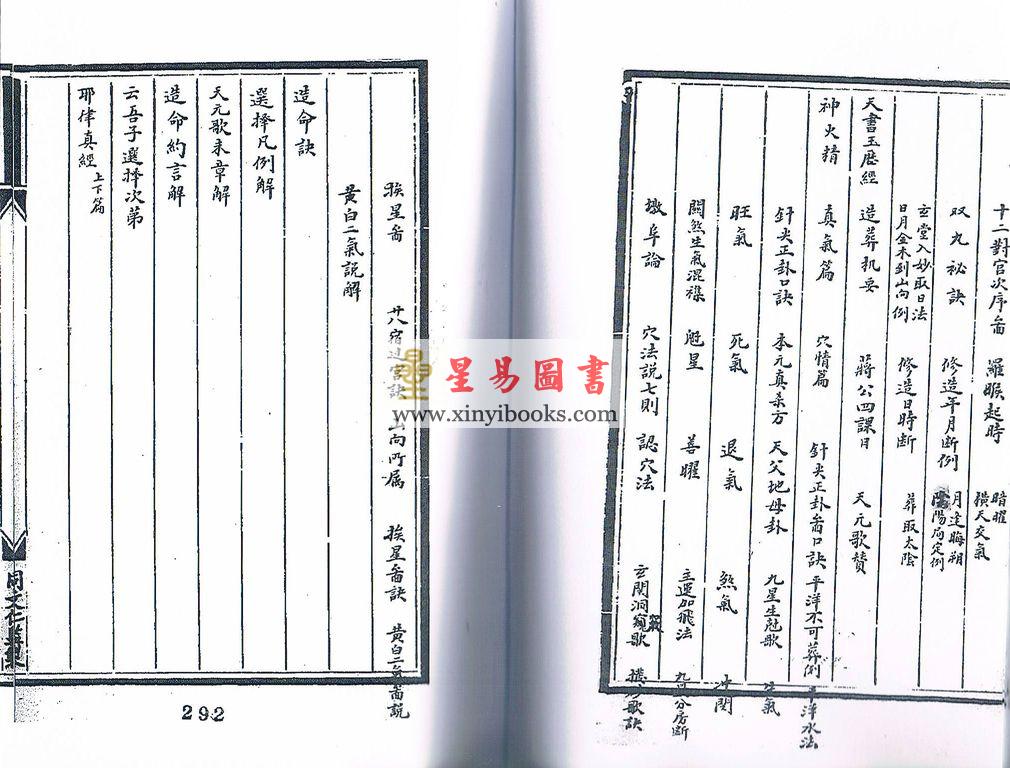 十二對宮次序啚 羅睺起時 暗曜 橫天交氣
双丸祕訣 修造年月斷例 月逢晦朔 陽局定例
玄堂入妙取日法 日月金木到山向例 修造日時斷 葬取太陰
天書玉歷經 造葬机要 蔣公四課日 天元歌贊
神火精 真氣篇 穴情篇 針尖正卦啚口訣 平洋不可葬例 平洋水法
針尖正卦口訣 本元真杀方 天父地母卦 九星生尅歌 生氣
旺氣 死氣 退氣 煞氣
關煞生氣混襍 魁星 善曜 主運加飛法
墩阜論 穴法說七則 認穴法 玄関洞竅歌
挨星啚 廿八宿 訣 山向所属 挨星啚訣 黃白二氣啚説
黃白二氣説解
造命訣
選擇凡例解
天元歌末章解
造命約言解
云吾子選擇次第
耶律真經 上下篇
292
星易圖書
www.xinyibooks.com